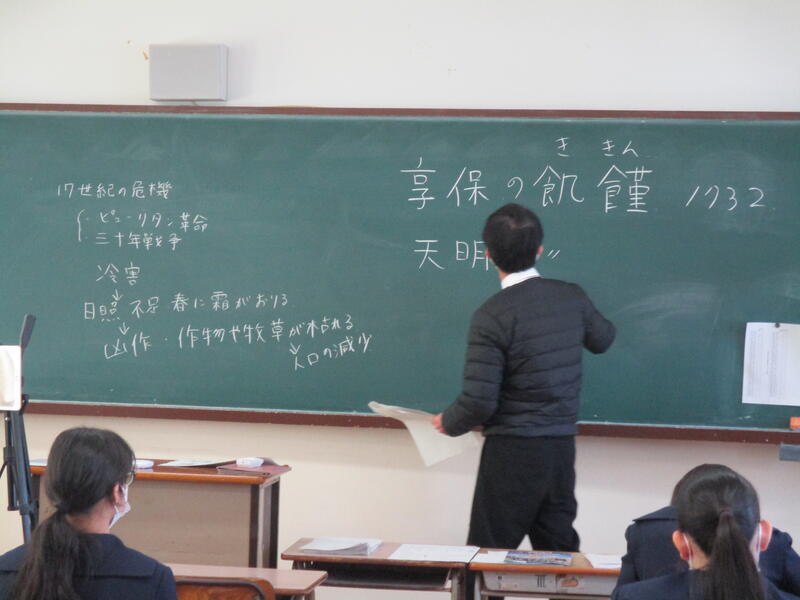 17世紀の危機
ピューリタン革命
三十年戦争
冷害
日照不足 春に霜がおりる
凶作・作物や牧草が枯れる
人口の減少
ききん
享保の飢饉 1732
天明 〃